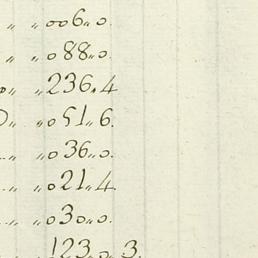 " "006"0.
" "088"0.
0" "236"4
0" "051"6.
" "036"0.
" "021"4.
" "030"0.
" "123"0"3.